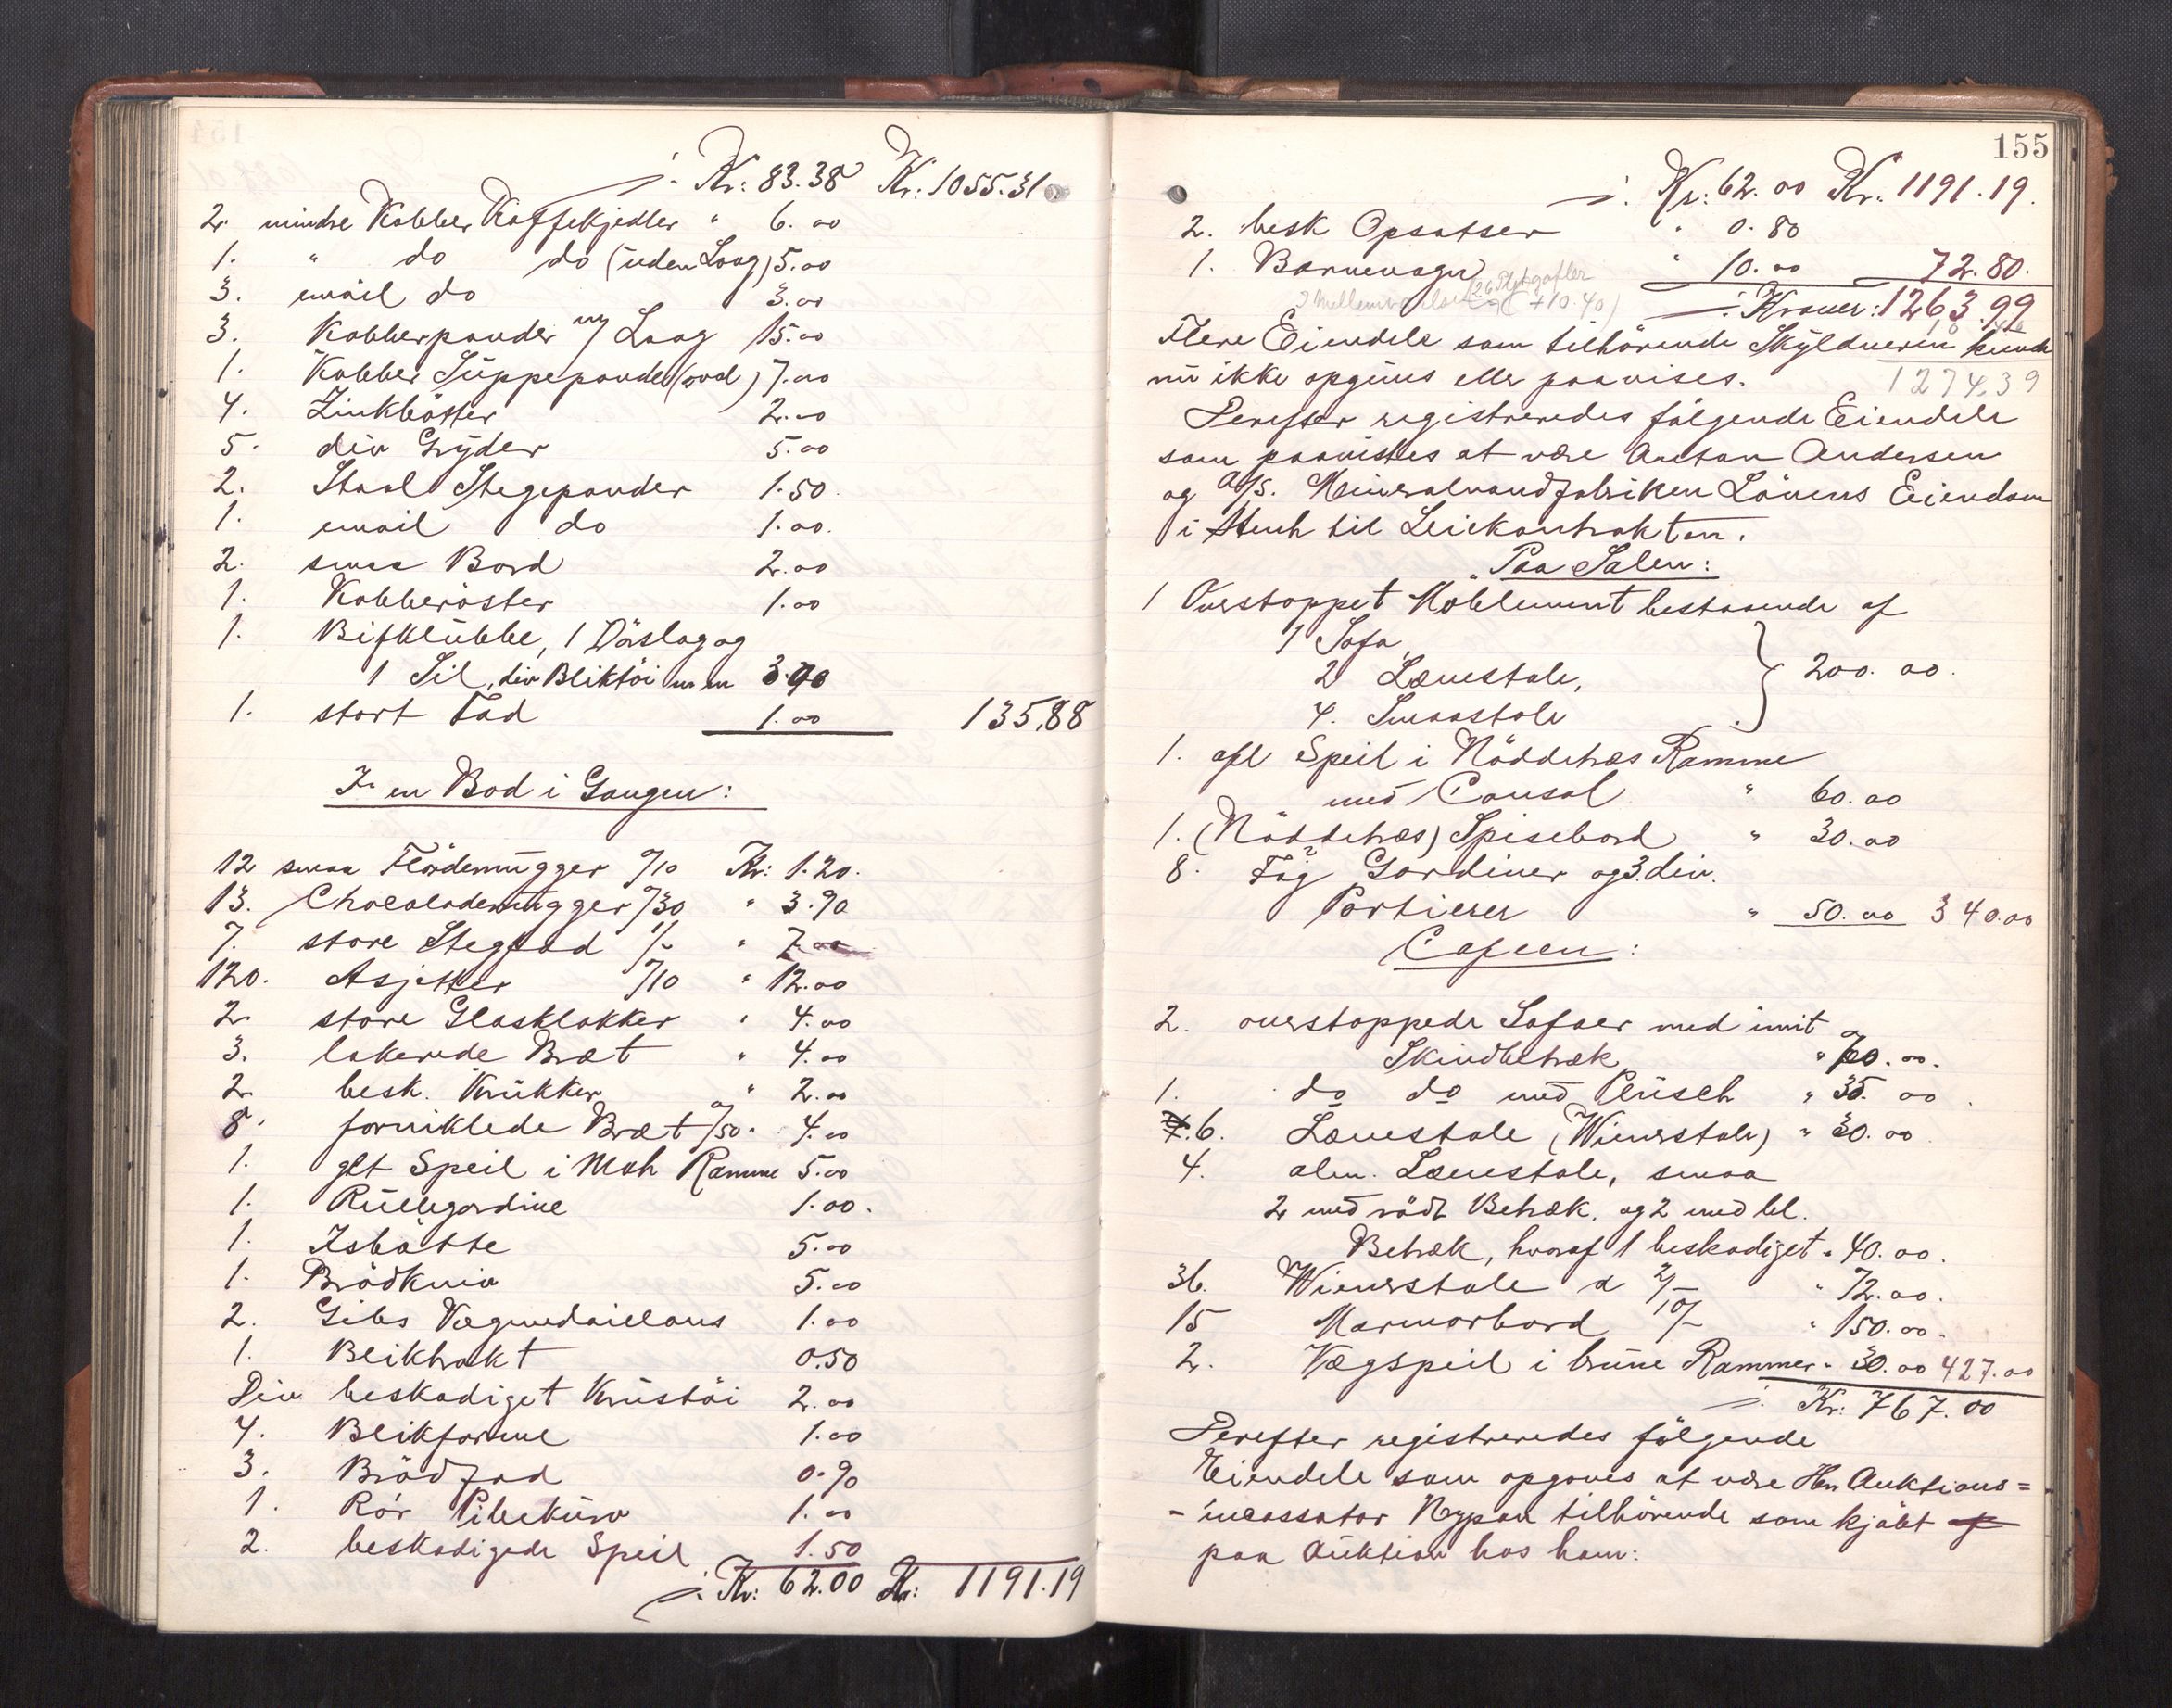 ÷ Kr: 83.38 Kr: 1055.31.
2. mindre Kobber Kaffekjedler " 6.00
1. " do do (uden Laag) 5.00
3. email do 3.00
3. Kobberpander m/ Laag 15.00
1. Kobber Süppepande (oval) 7.00
4. Zinkbøtter 2.00
5. div Gryder 5.00
2. Staal Stegepander 1.50.
1. email do 1.00.
2. smaa Bord 2.00
1. Kobberøster 1.00
1. Bifklübbe, 1 Dørslag og
1 Sil, div Bliktøi m m
1. stort Fad 1.00 135,88
I en Bod i Gangen:
12 smaa Flødemügger %10 Kr: 1.20.
13. Chocolademügger %30 " 3.90
7. store Stegfad 1/- " 7.00
120. Asjetter %10 " 12.00
2. store Glasklokker " 4.00
3. lakerede Bræt " 4.00
2. besk. Krükker " 2.00
8. forniklede Bræt %50 " 4.00
1. glt Speil i Mah Ramme 5.00
1. Rüllegardine 1.00.
1. Isbøtte 5.00
1. Brødkniv 5.00
2. Gibs Vægmedaillons 1.00
1. Bliktrakt 0.50
Div beskadiget Krüstøi 2.00
4. Blikforme 1.00
3. Brødfad 0.90
1. Rør 1.00
2. beskadigede Speil 1.50
÷ Kr: 62.00 Kr: 1191.19
155
÷ Kr: 62.00 Kr. 1191.19.
2. besk Opsatser " 0.80
1. Barnevogn " 10.00 72.80.
(26 gafler
+10.40)
÷ Kroner: 1263.99
Flere Eiendele som tilhørende Skyldneren kunde
nü ikke opgives eller paavises. 1274.39
Derefter registreredes følgende Eiendele
som paavistes at være Anton Andersen
og A/S. Mineralvandfabriken Løvens Eiendom
i Henh til Leiekontrakten.
Paa Salen:
1 Overstoppet Møblement bestaaende af
1 Sofa
2 Lænestole, } 200.00.
4. Smaastole
1. Speil i Nøddetræs Ramme
med Consol " 60.00
1. (Nøddetræs) Spisebord " 30.00
8. Fag Gardiner og 3 div.
Portierer " 50.00 340.00
Cafeen:
2. overstoppede Sofaer med imit
Skindbetræk " 70.00.
1. do do med Plüsch " 35.00.
6. Lænestole (Wienerstole) " 30.00
4. alm. Lænestole, smaa
2 med rødt Betræk, og 2 med bl.
Betræk, hvoraf 1 beskadiget " 40.00.
36. Wienerstole a 2/- " 72.00.
15 Marmorbord 10/- " 150.00.
2. Vægspeil i brüne Rammer " 30.00 427.00
÷ Kr: 767.00
Derefter registreredes følgende
Eiendele som opgaves at være Hr Auktions=
-incassator Nypan tilhørende som kjøbt
paa Auktion hos ham: